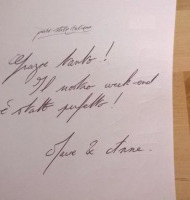 Grazie tanto!
Il nostro week-end
è stato perfetto!
& Anne.